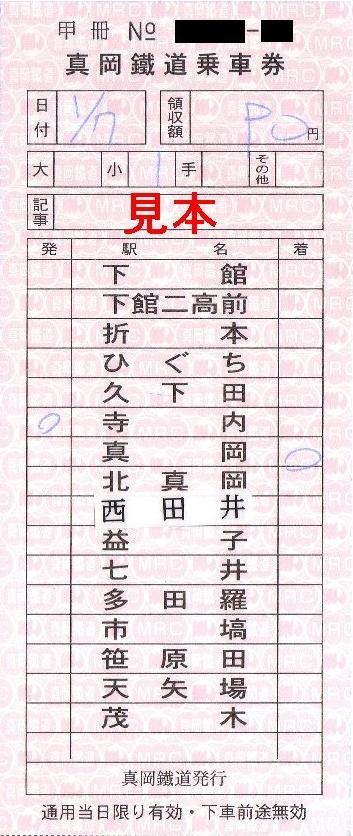 甲冊 № -
真岡鐵道乗車券
日付 1/7 領収額 円
大 小 1 手 その他
記事
見本
発 駅名 着
下館
下館二高前
折本
ひぐち
久下田
寺内
真岡
北真岡
西田井
益子
七井
多田羅
市塙
笹原田
天矢場
茂木
真岡鐵道発行
通用当日限り有効・下車前途無効